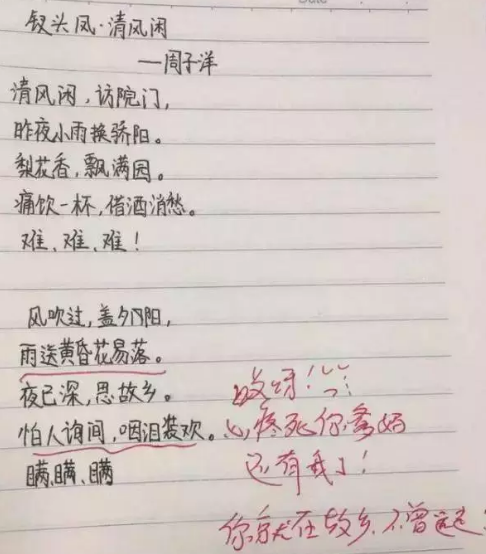 钗头凤·清风闲
—周子洋
清风闲，访院门，
昨夜小雨换骄阳。
梨花香，飘满园。
痛饮一杯，借酒消愁。
难、难、难！
风吹过，盖夕阳，
雨送黄昏花易落。
夜已深，思故乡。
怕人询问，咽泪装欢。
瞒、瞒、瞒
心疼死你爹妈
还有我了！
在故乡，不曾远